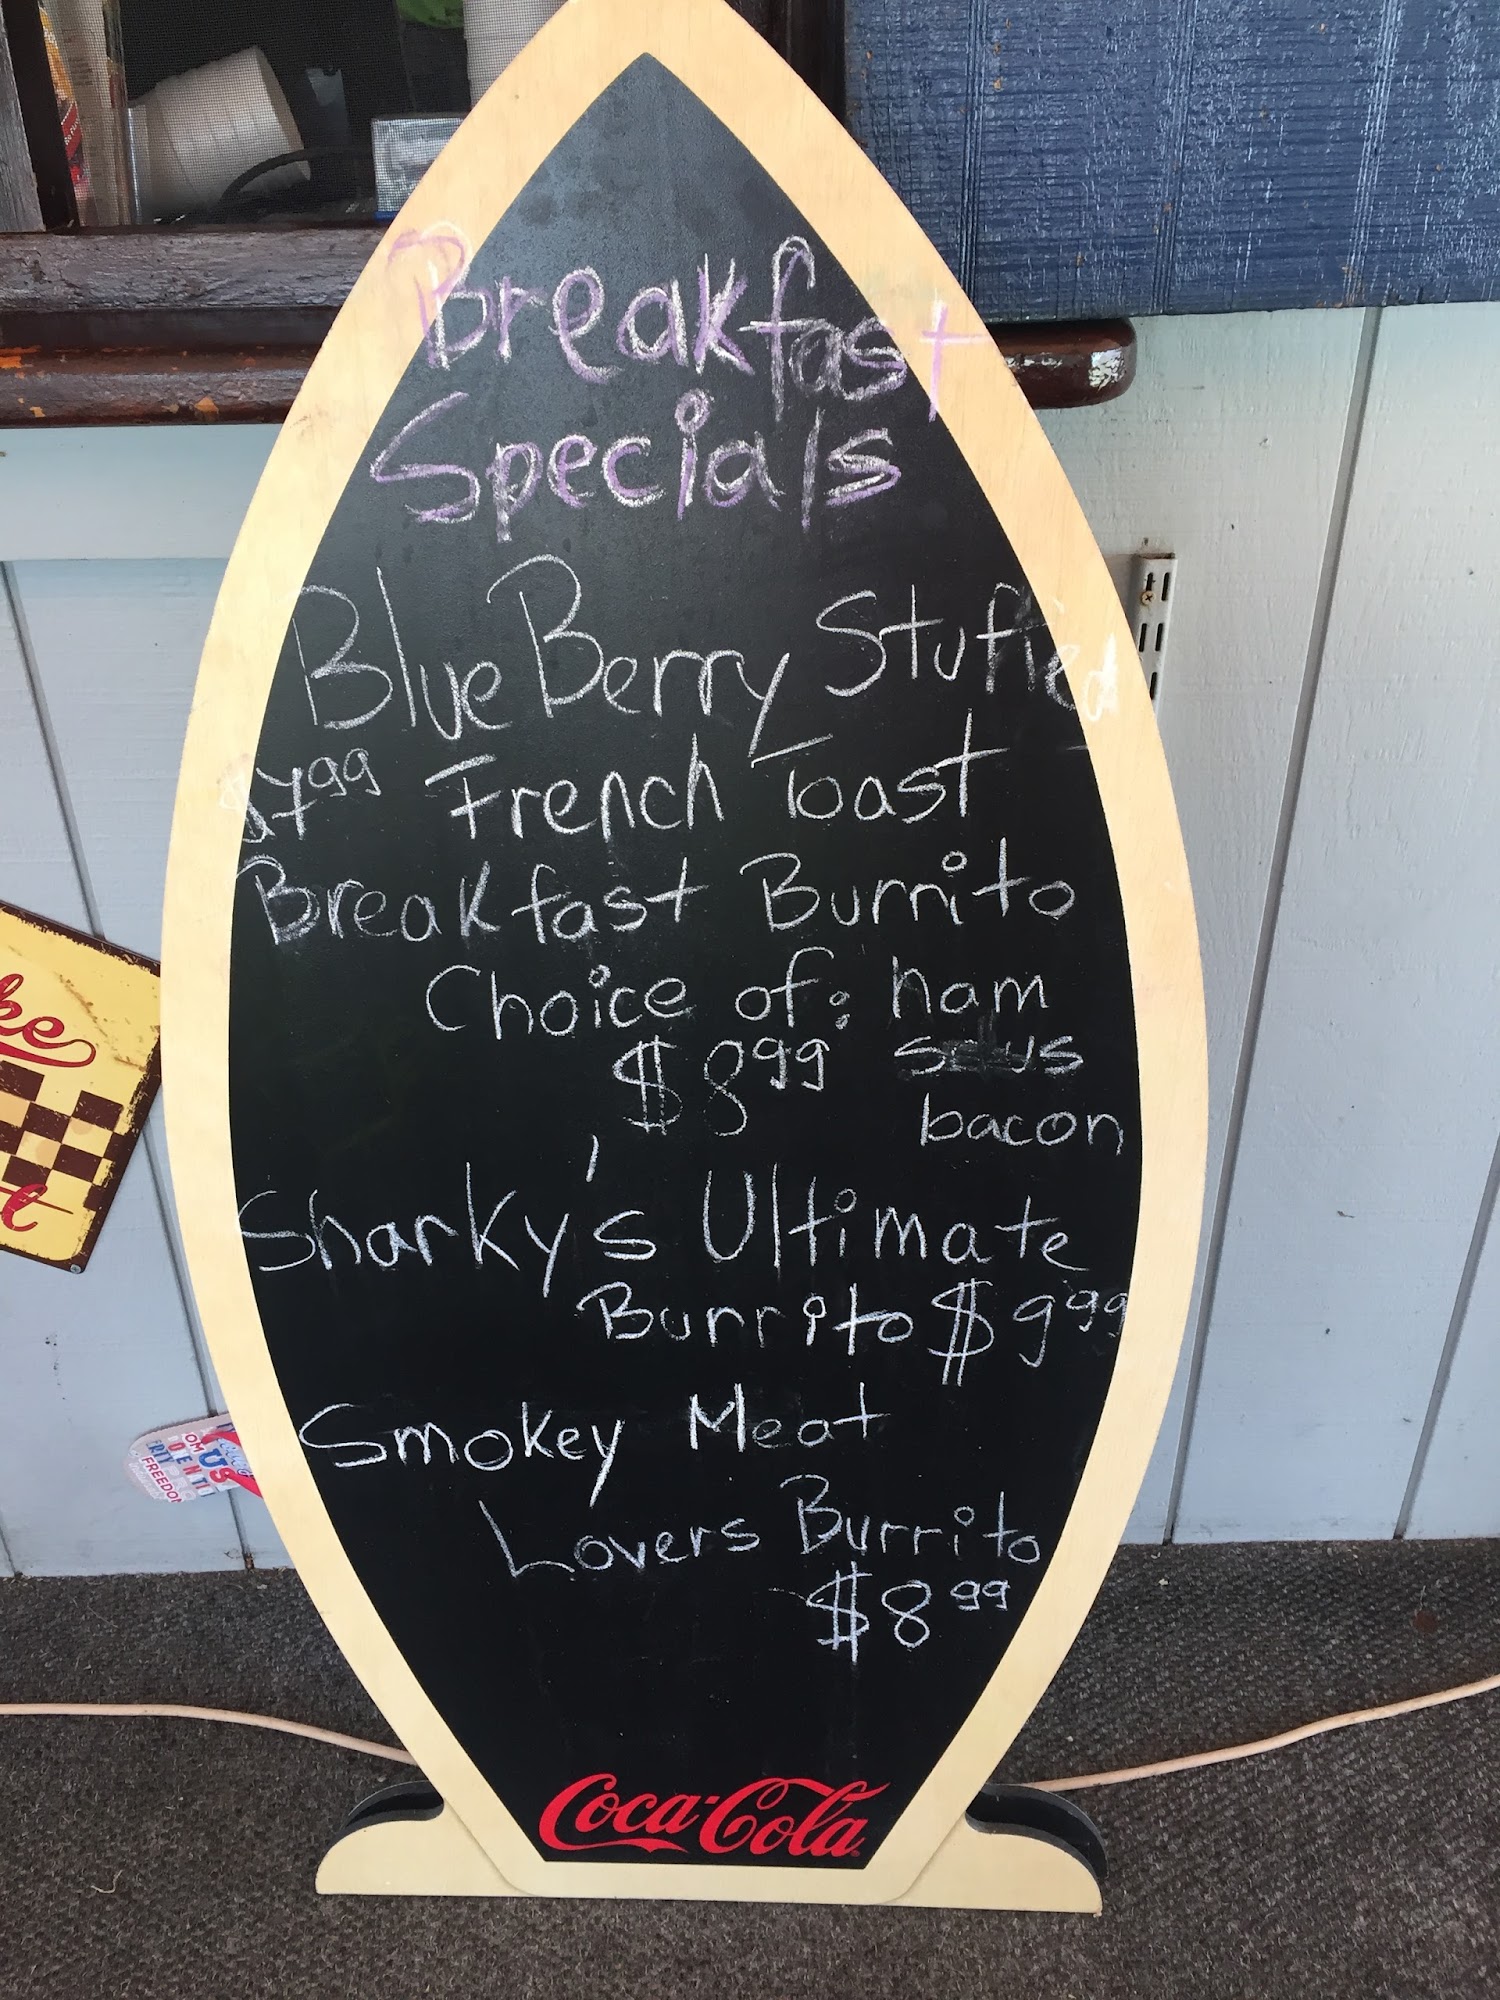 Breakfast
Specials
BlueBerry Stuffed
$7.99 French Toast
Breakfast Burrito
Choice of: ham
$8.99 saus
bacon
Sharky's Ultimate
Burrito $9.99
Smokey Meat
Lovers Burrito
$8.99
Coca-Cola
ke
t
US
FREEDO